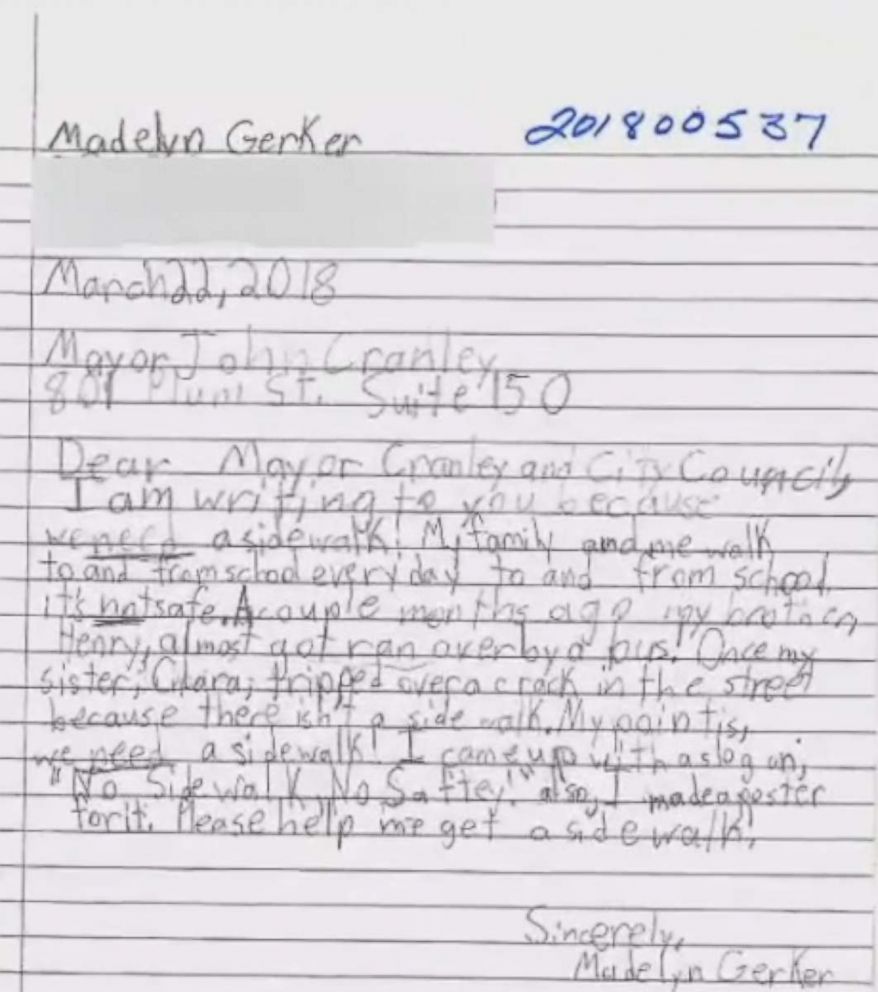 Madelyn Gerker 201800537
March 22, 2018
Mayor John Cranley
801 Plum St. Suite 150
Dear Mayor Cranley and City Council,
I am writing to you because
we need a sidewalk! My family and me walk
to and from school every day to and from school
it's not safe. A couple months ago my brother,
Henry, almost got ran over by a bus! Once my
sister, Clara, tripped over a crack in the street
because there isn't a side walk. My point is,
we need a sidewalk! I came up with a slogan,
"No Sidewalk, No Saftey!" also, I made a poster
for it. Please help me get a sidewalk!
Sincerely,
Madelyn Gerker